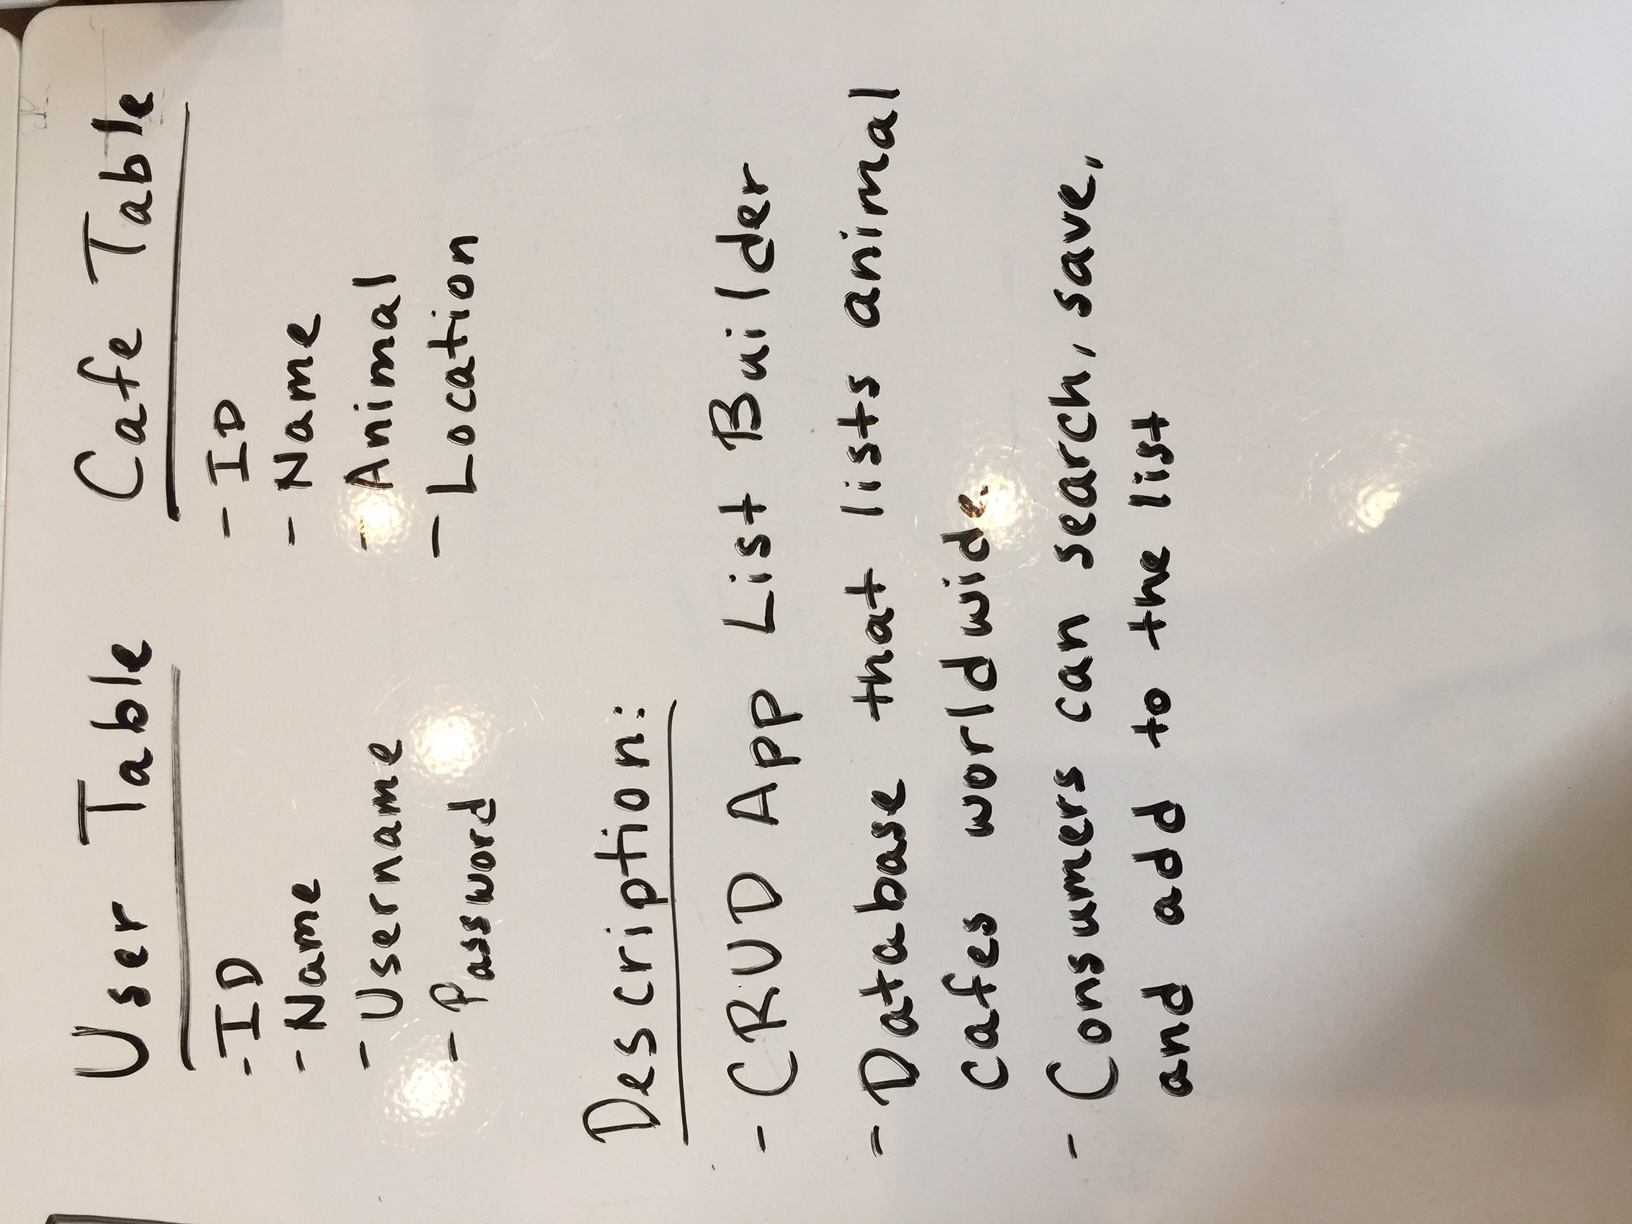 User Table
- ID
- Name
- Username
- Password
Cafe Table
- ID
- Name
- Animal
- Location
Description:
- CRUD App List Builder
- Database that lists animal
cafes worldwide.
- Consumers can search, save,
and add to the list